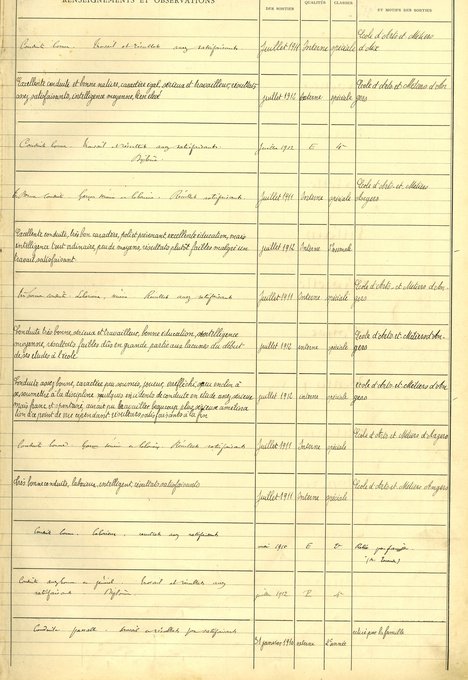 RENSEIGNEMENTS ET OBSERVATIONS
DES SORTIES
QUALITÉS
CLASSES
ET MOTIFS DES SORTIES
Conduite bonne. Travail et résultats assez satisfaisants
juillet 1911 Interne spéciale
Ecole d'Arts et Métiers
d'Aix
Excellente conduite et bonne nature, caractère égal, sérieux et travailleur, résultats
assez satisfaisants, intelligence moyenne, bien élevé
juillet 1912 Externe spéciale
Ecole d'Arts et Métiers d'An-
gers
Conduite bonne. Travail et résultats assez satisfaisants
Diplômé
juillet 1912 E 4e
Résultats satisfaisants
Juillet 1911 Interne spéciale
Ecole d'Arts et Métiers
Angers
Excellente conduite, très bon caractère, poli et prévenant, excellente éducation, mais
intelligence tout ordinaire, peu de moyens, résultats plutôt faibles malgré un
travail satisfaisant
juillet 1912 Interne
Très bonne conduite. Laborieux, Résultats assez satisfaisants
Juillet 1911 Interne spéciale
Ecole d'Arts et Métiers d'An-
gers
Conduite très bonne, sérieux et travailleur, bonne éducation, intelligence
moyenne, résultats faibles dûs en grande partie aux lacunes du début
de ses études à l'école
juillet 1912 interne spéciale
Ecole d'Arts et Métiers d'An-
gers
Conduite assez bonne, caractère peu enclin à
se soumettre à la discipline quelques incidents de conduite en étude assez sérieux
mais franc et spontané, aurait pu travailler beaucoup plus, sérieuse améliora-
tion à ce point de vue cependant résultats satisfaisants à la fin
juillet 1912 interne spéciale
école d'Arts et Métiers d'An-
gers
Conduite bonne. Résultats satisfaisants
Juillet 1911 Interne spéciale
Ecole d'Arts et Métiers d'Angers
Très bonne conduite, laborieux, intelligent, résultats satisfaisants
Juillet 1911 Interne spéciale
Ecole d'Arts et Métiers Angers
Conduite bonne. Laborieux, résultats assez satisfaisants
mai 1910 E 2e
Retiré par famille
Conduite assez bonne en général. Travail et résultats assez
satisfaisants Diplômé
juillet 1912 4e
Conduite passable. travail et résultats peu satisfaisants
31 janvier 1910 externe 2e année
retiré par la famille